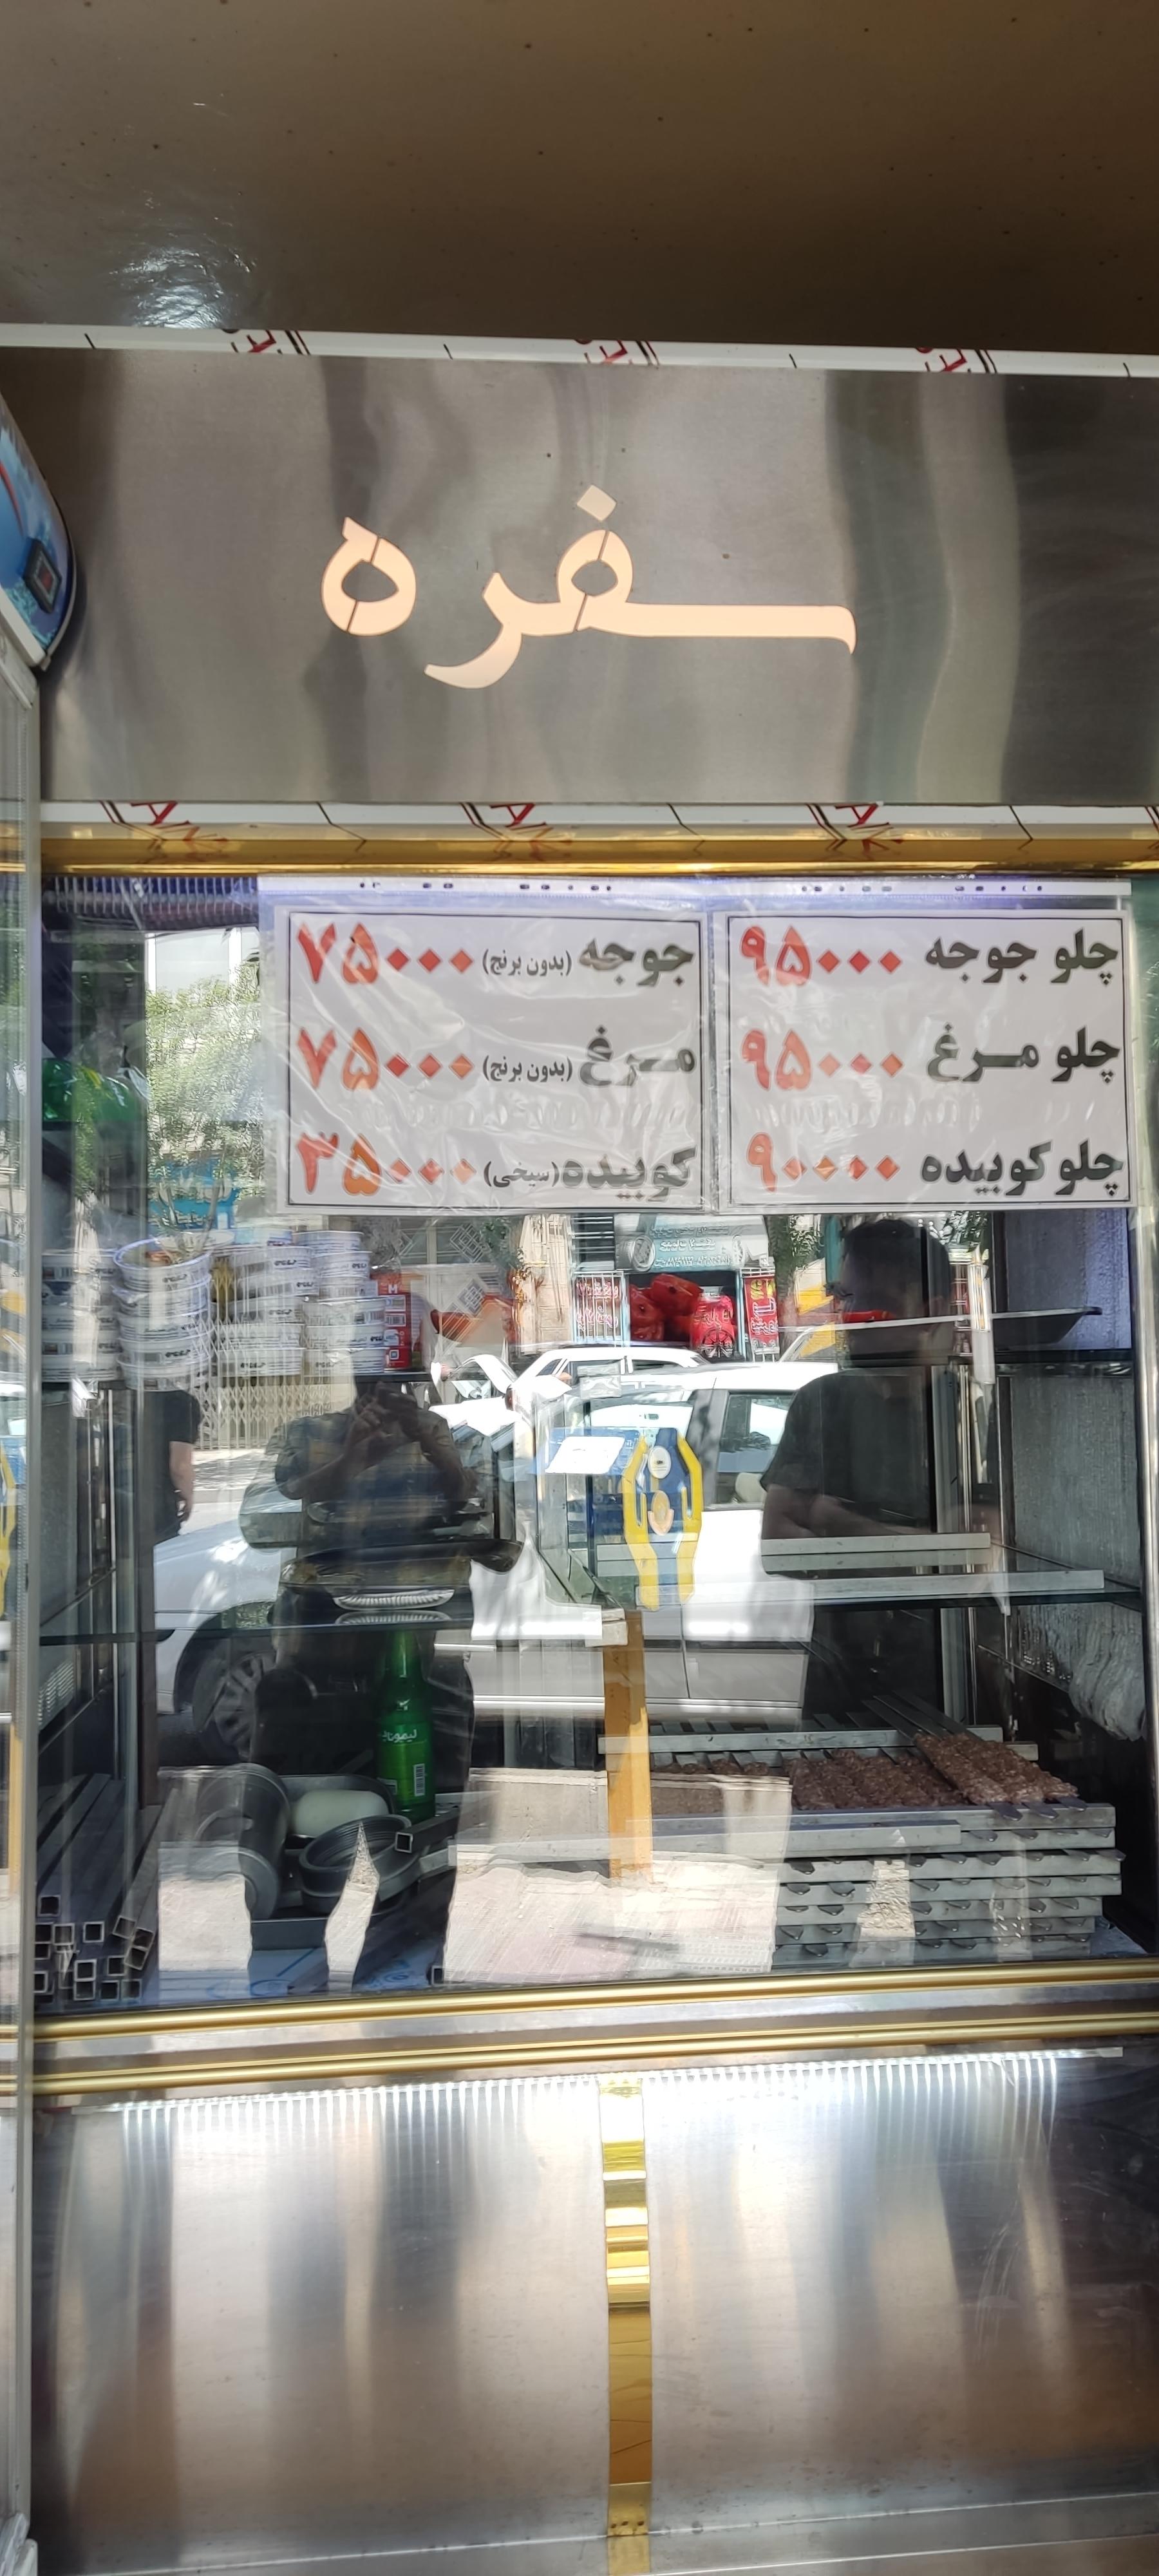 سفره
چلو جوجه ۹۵۰۰۰
چلو مرغ ۹۵۰۰۰
چلو کوبیده ۹۰۰۰۰
جوجه (بدون برنج) ۷۵۰۰۰
مرغ (بدون برنج) ۷۵۰۰۰
کوبیده (سیخی) ۳۵۰۰۰